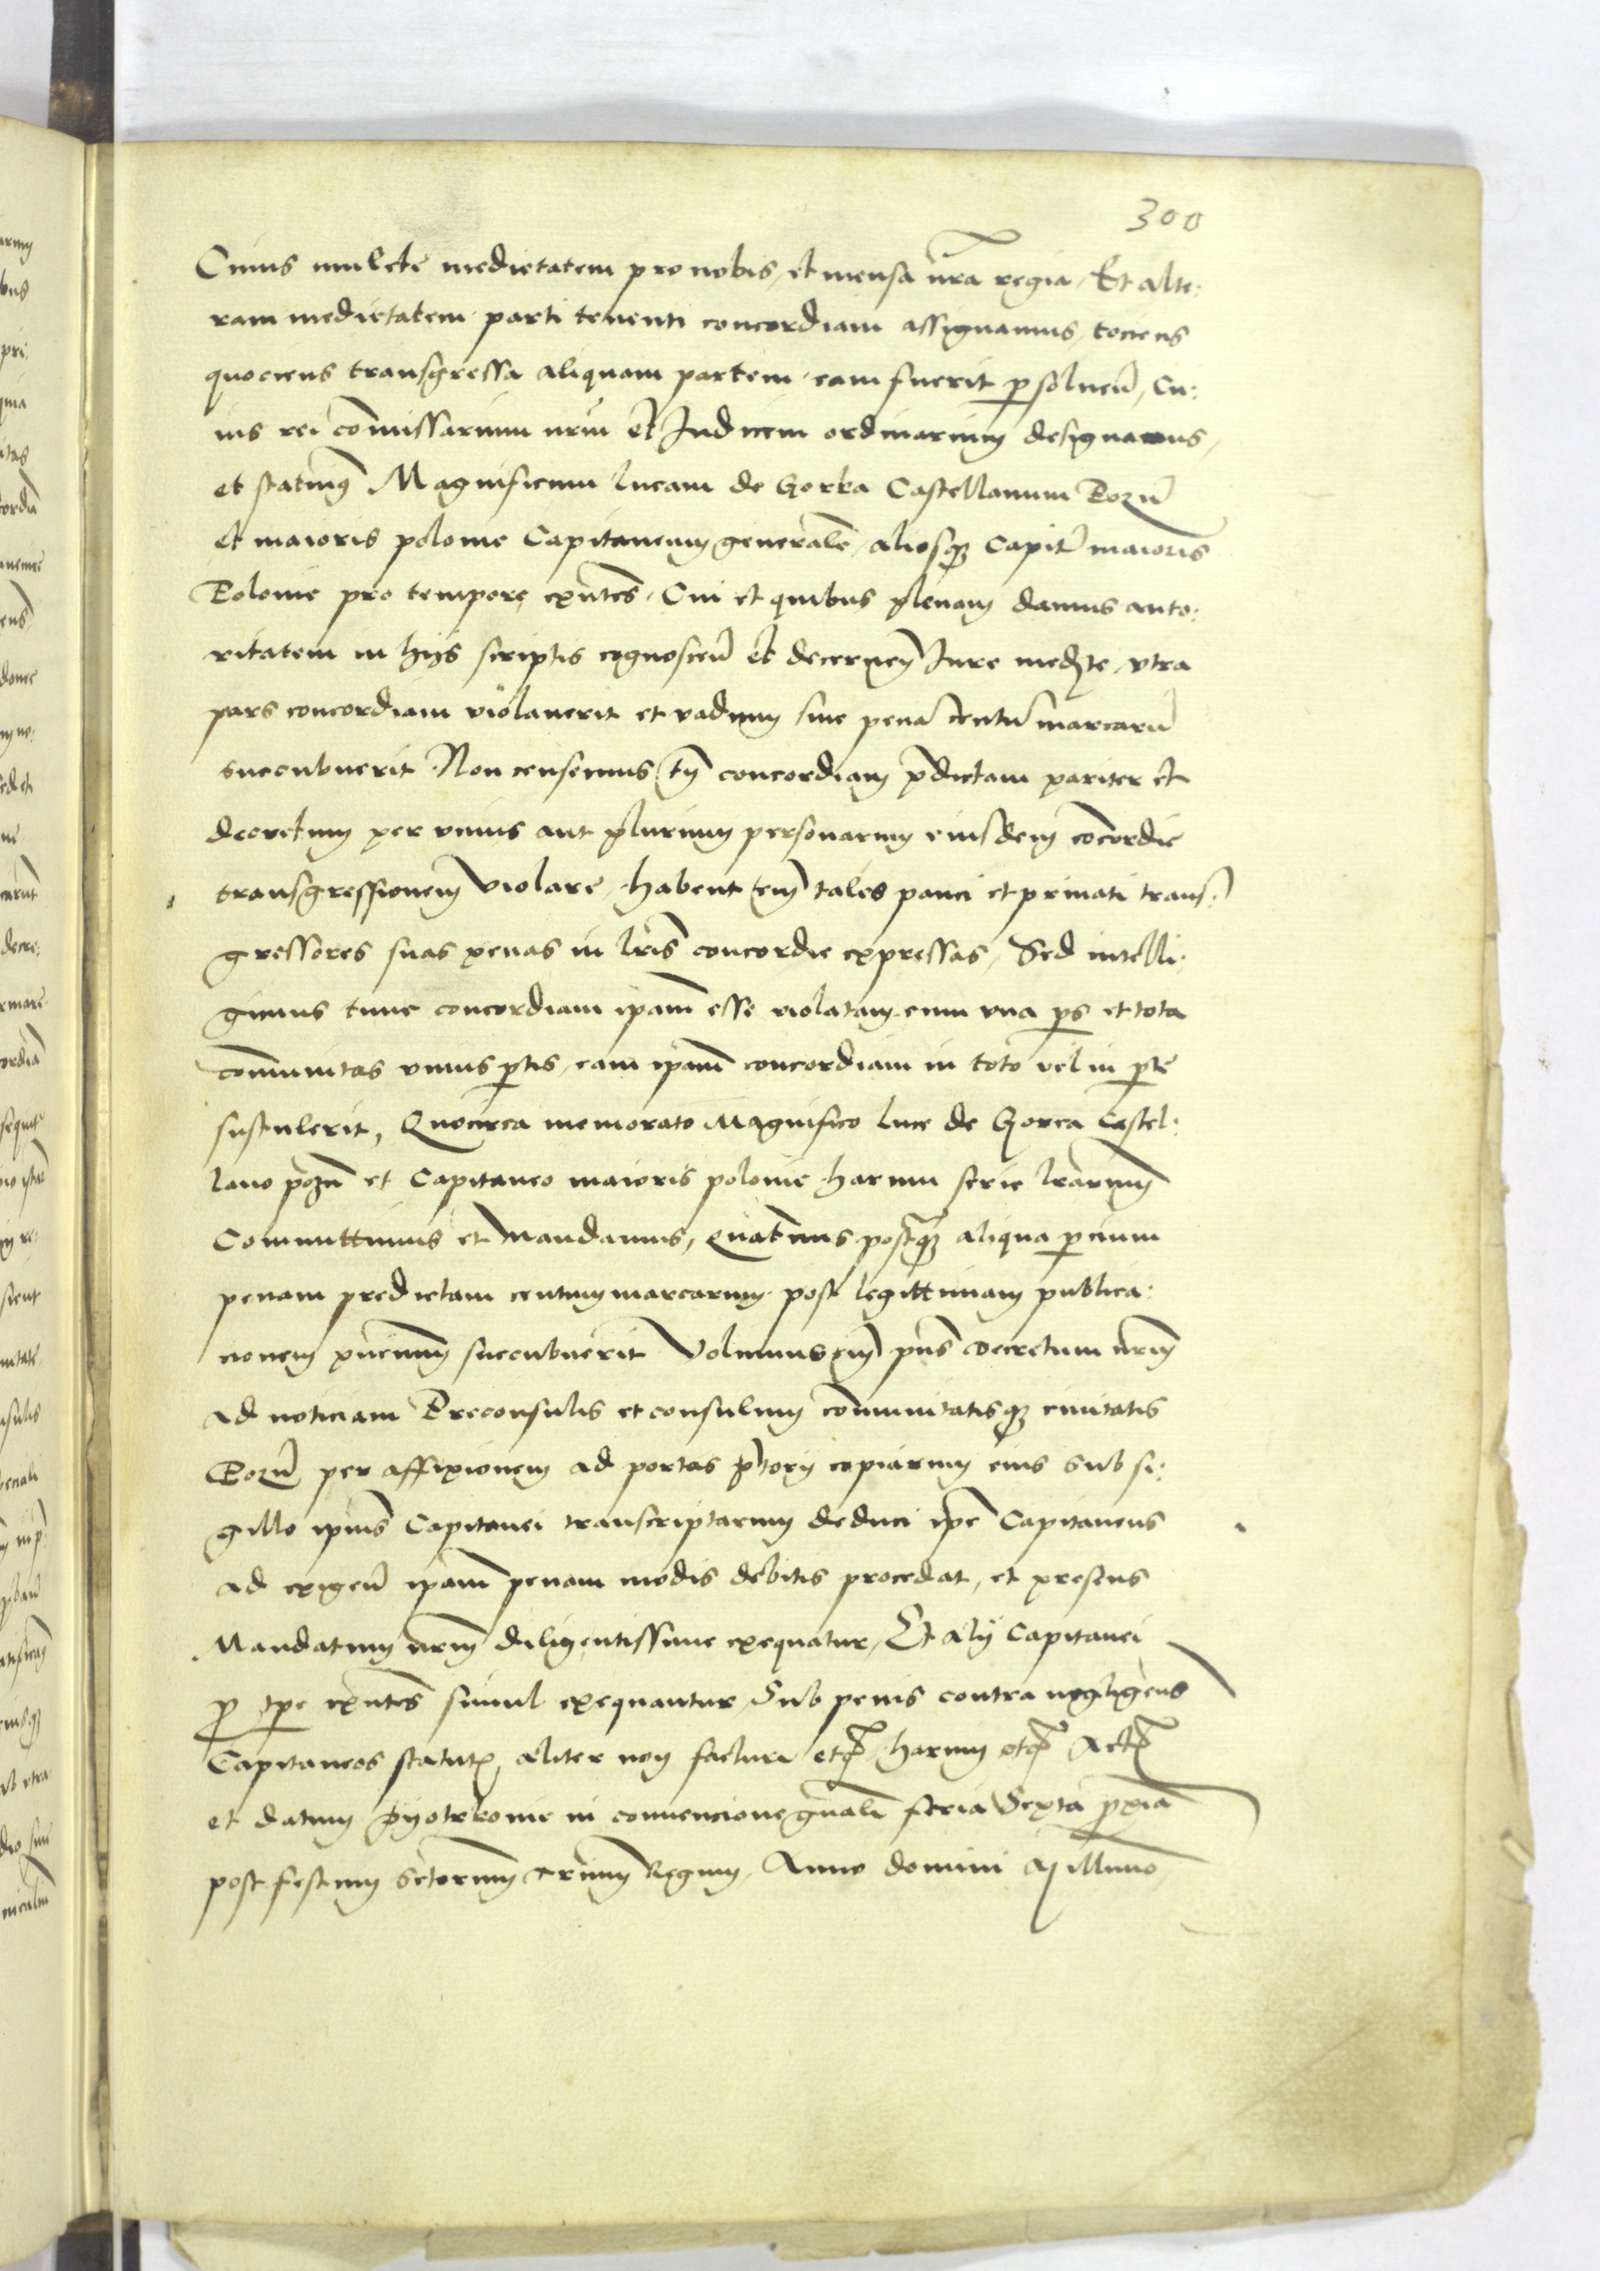 300
Cuius mulcte medietatem pro nobis, et mensa nra regia, Et alte:
ram medietatem parti tenenti concordiam assignamus, tociens
quociens transgressa aliquam partem eam fuerit psoluen, Cu:
ius rei comissarium nrm et Judicem ordinarium designamus,
et statuimq Magnificum lucam de Gorka Castellanum Pozn
et maioris polonie Capitaneum generale, aliosq Capit maioris
Polonie pro tempore exntes. Cui et quibus plenam damus auto:
ritatem in hijs scriptis cognoscen et decernen Jure medte, vtra
pars concordiam violauerit et vadium siue pena centu marcaru
succubuerit. Non censemus tn concordiam pdictam pariter et
decretum per vnius aut plurium personarum eiusdem cocordie
transgressionem violare, habent em tales pauci et priuati trans:
gressores suas penas in lris concordie expressas, Sed intelli:
gimus tunc concordiam ipam esse violatam cum vna ps et tota
comunitas vnius ptis, eam ipam concordiam in toto vel in pte
sustulerit, Quocirca memorato Magnifico luce de Gorca Castel:
lano pozn et Capitaneo maioris polonie harum serie lrarum
Committimus et Mandamus, Quatenus postq aliqua pcium
penam predictam centum marcarum post legittimam publica:
cionem pncium succubuerit Volumus em pns decretum nrm
ad noticiam Preconsulis et consulum comunitatisq ciuitatis
Pozn per affixionem ad portas ptorij copiarum eius sub si:
gillo ipius Capitanei transcriptarum deduci ipe Capitaneus
ad exigen ipam penam modis debitis procedat, et presens
Mandatum nrm diligentissime exequatur, Et alij Capitanei
p tpe exntes simul exequantur, Sub penis contra negligens
Capitaneos statut, aliter non facturi etc harum etc Act
et datum Pyotrkouie in conuencione gnali feria Sexta pxia
post festum sctorum trium Regum. Anno domini Millimo